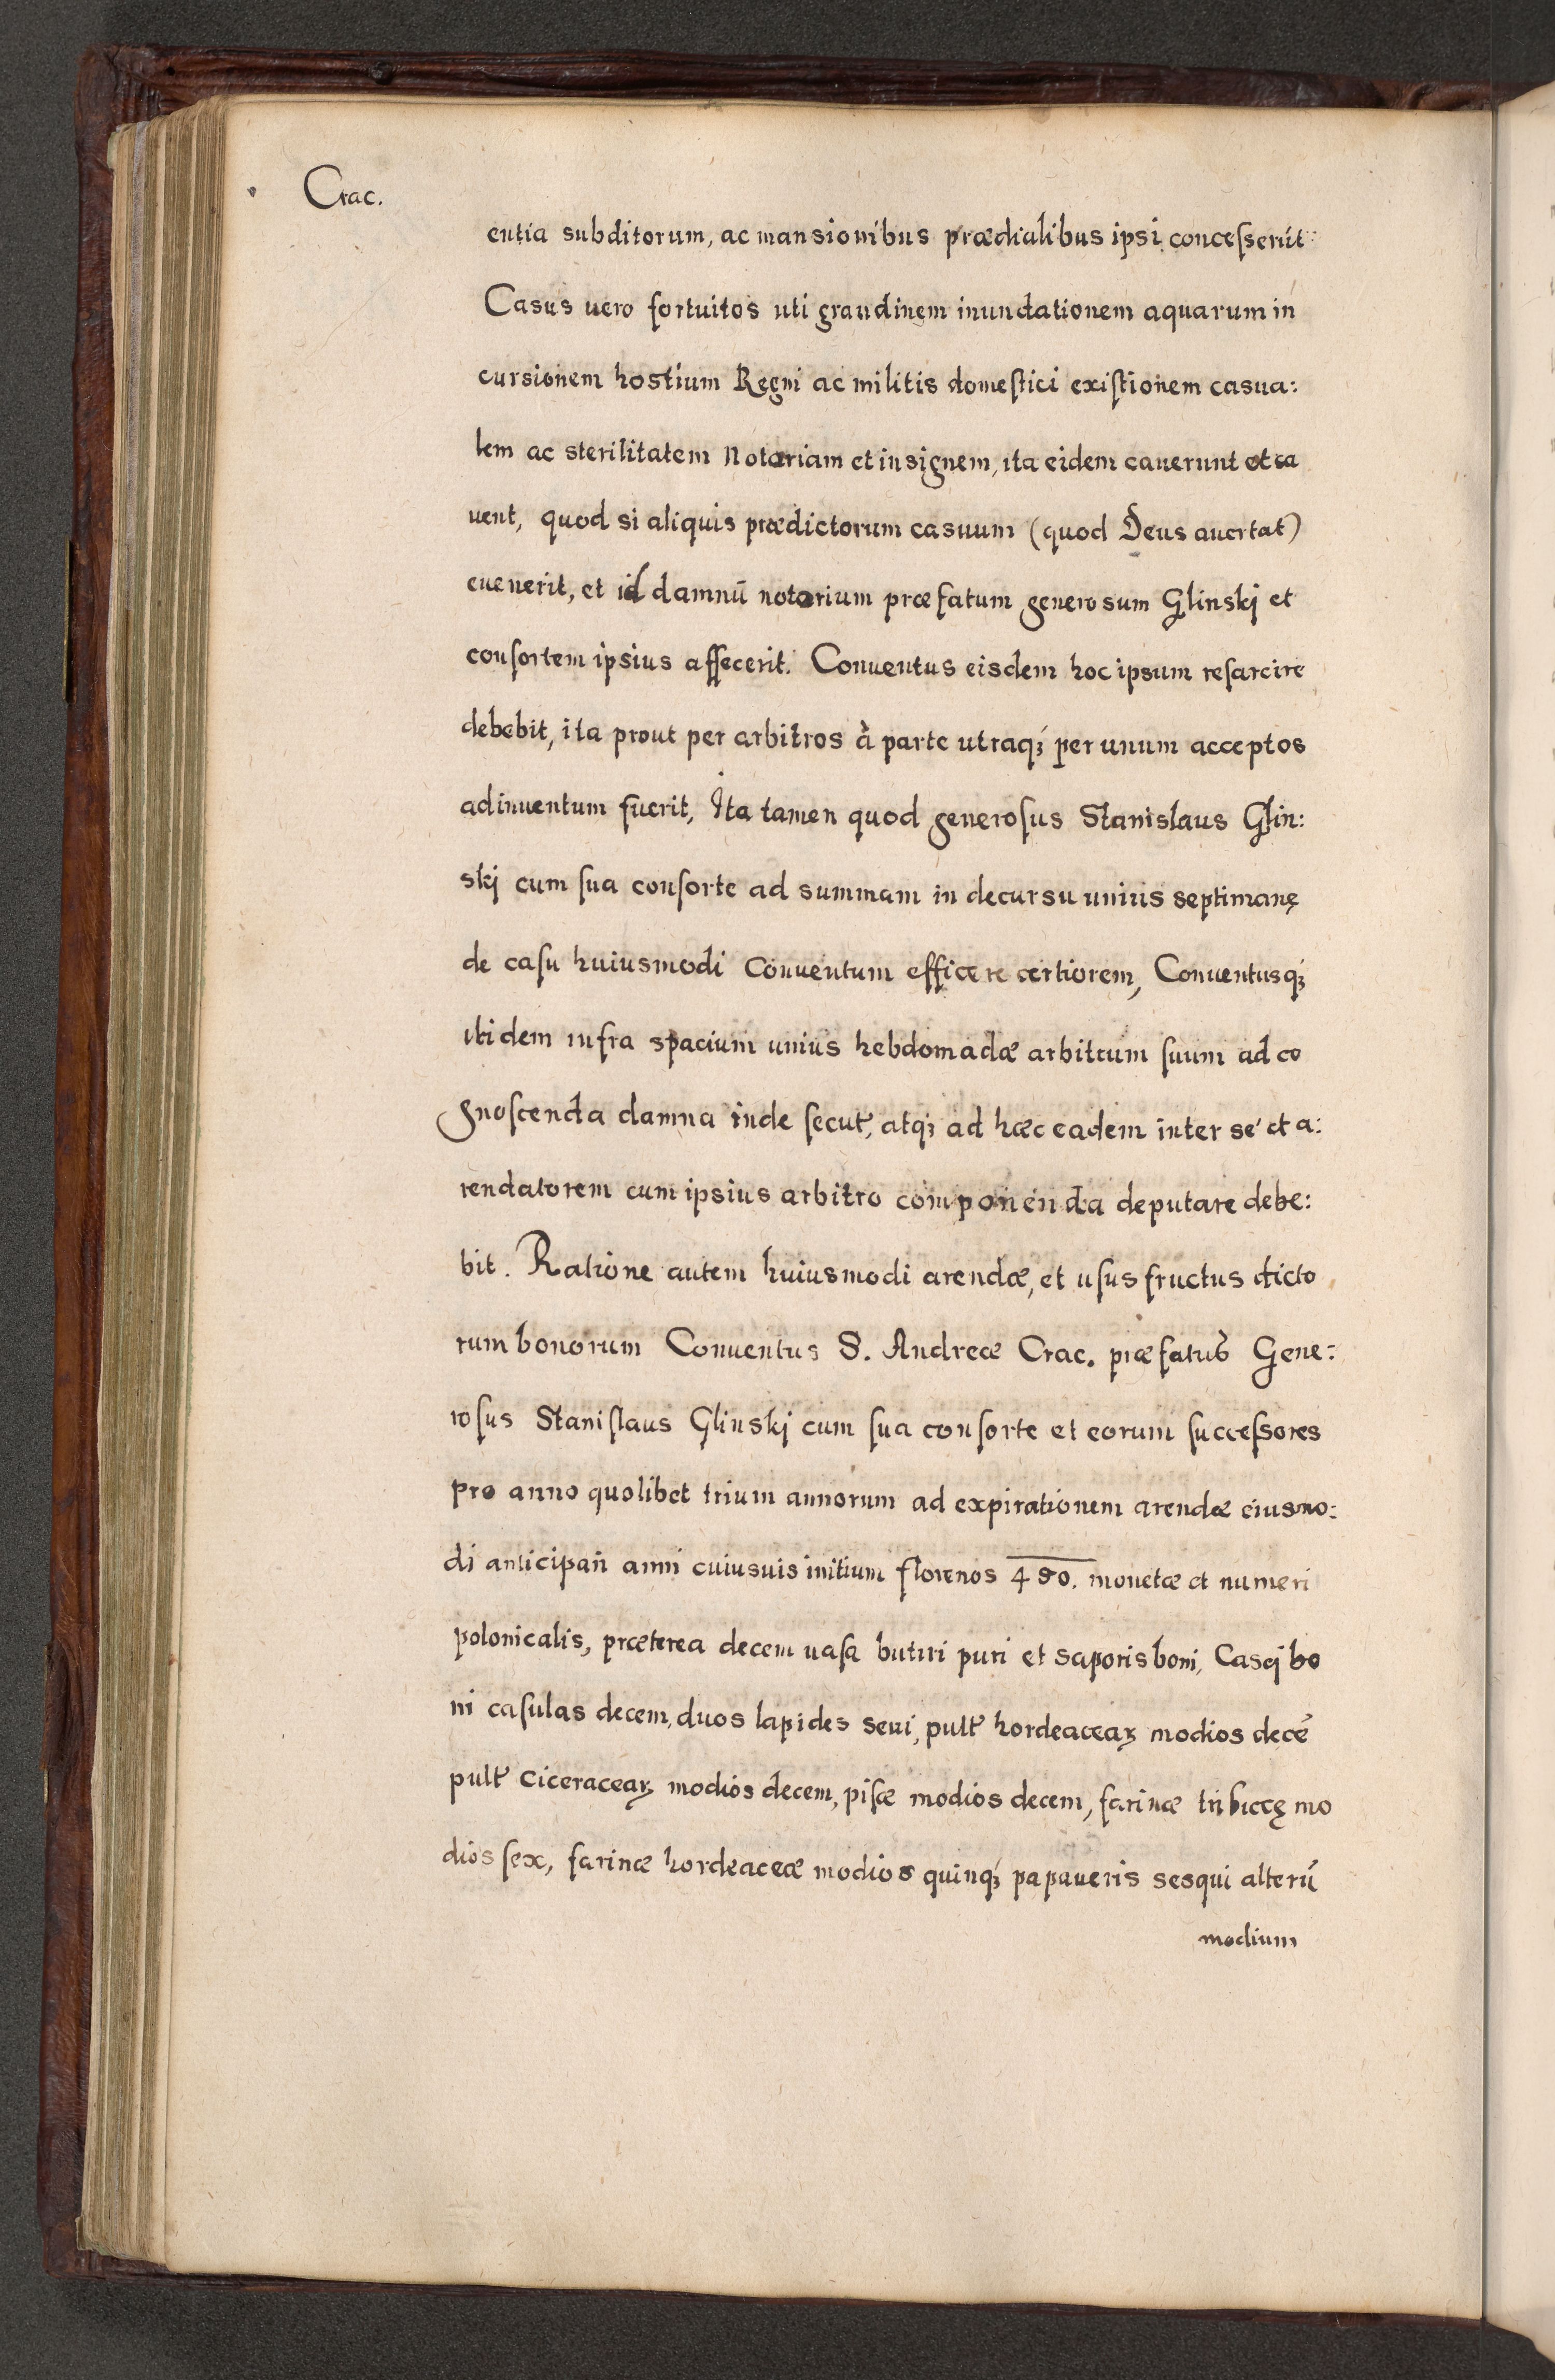 Crac.
entia subditorum, ac mansionibus prædialibus ipsi concesserūt:
Casus uero fortuitos uti grandinem inundationem aquarum in
cursionem hostium Regni ac militis domestici existionem casua:
lem ac sterilitatem notoriam et insignem, ita eidem cauerunt et ca
uent, quod si aliquis prædictorum casuum (quod Deus auertat)
euenerit, et id damnū notorium præfatum generosum Glinskj et
consortem ipsius affecerit. Conuentus eisdem hoc ipsum resarcire
debebit, ita prout per arbitros à parte utraqꝫ per unum acceptos
adinuentum fuerit, Ita tamen quod generosus Stanislaus Glin:
skj cum sua consorte ad summam in decursu unius septimanę
de casu huiusmodi Conuentum efficere certiorem, Conuentusqꝫ
itidem infra spacium unius hebdomadæ arbitrum suum ad co
gnoscenda damna inde secut, atqꝫ ad hæc eadem inter sé et a:
rendatorem cum ipsius arbitro componenda deputare debe:
bit. Ratione autem huiusmodi arendæ, et usus fructus dicto
rum bonorum Conuentus S. Andreæ Crac. præfatus Gene:
rosus Stanislaus Glinskj cum sua consorte et eorum successores
pro anno quolibet trium annorum ad expirationem arendæ eiusmo:
di anticipan̄ anni cuiusuis initium florenos 450. monetæ et numeri
polonicalis, præterea decem uasa butiri puri et saporis boni, Casej bo
ni casulas decem, duos lapides seui, pult hordeaceaꝝ modios decē
pult ciceraceaꝝ modios decem, pisæ modios decem, farinæ triticeę mo
dios sex, farinæ hordeaceæ modios quinqꝫ papaueris sesqui alterū
modium